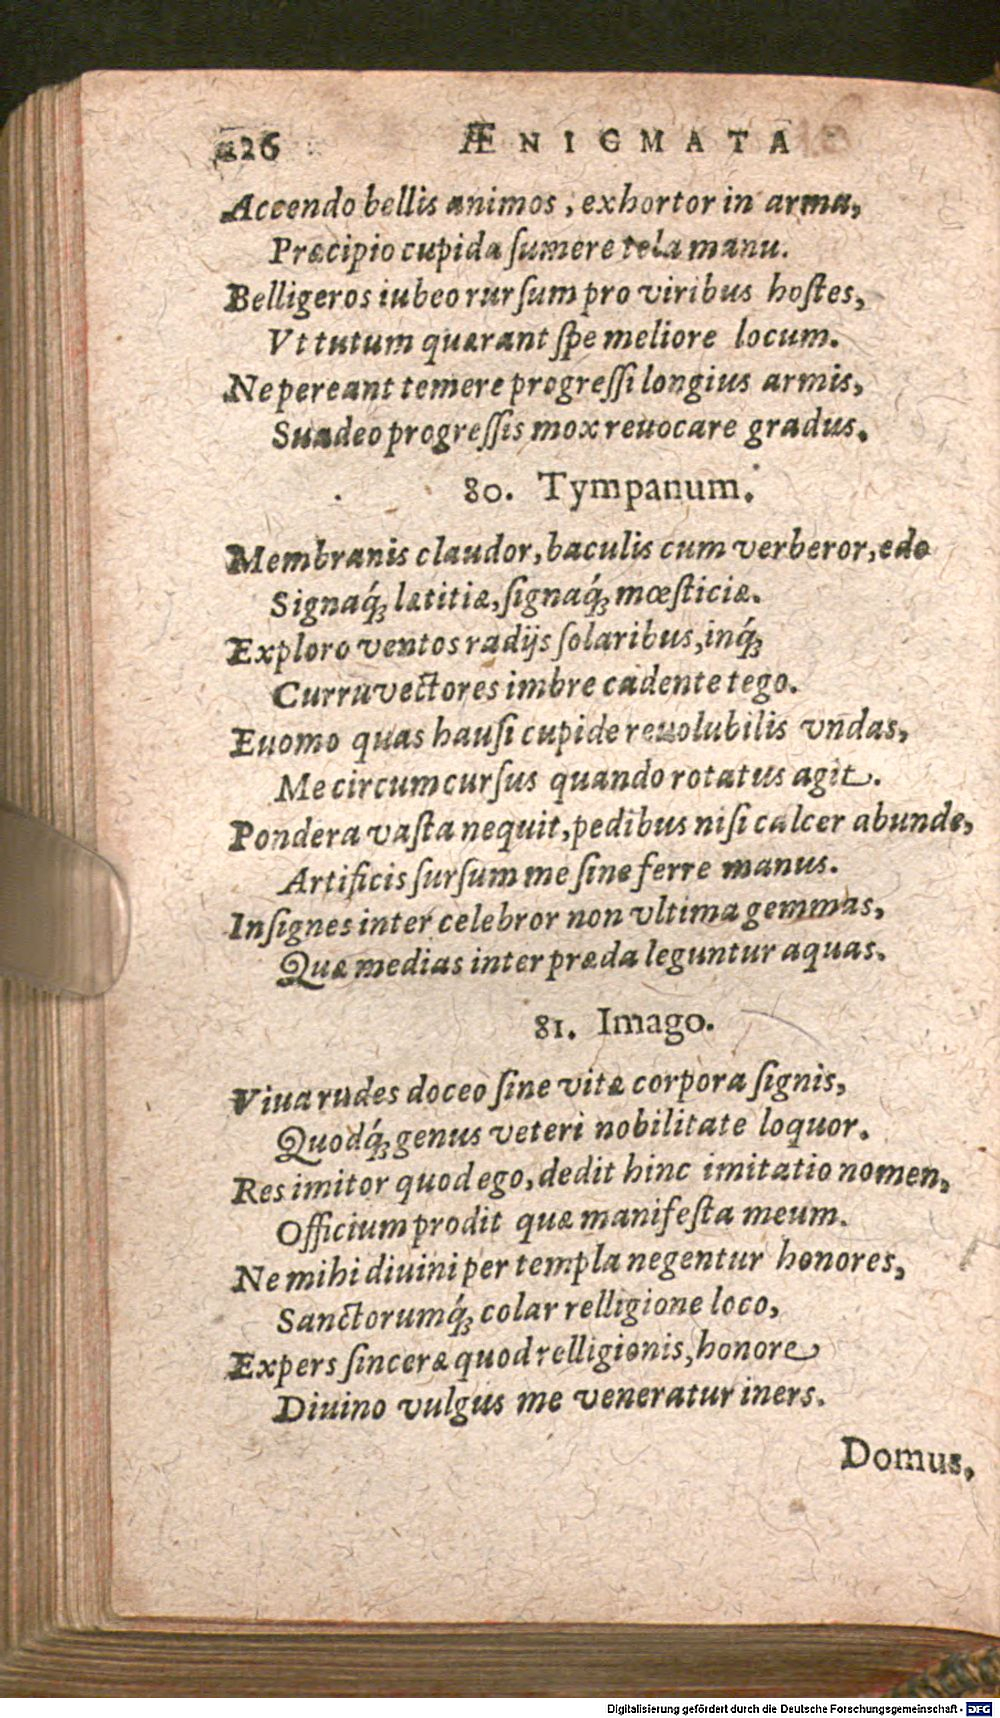 226 ÆNIGMATA
Accendo bellis animos, exhortor in arma,
Præcipio cupida ſumere tela manu.
Belligeros iubeo rurſum pro viribus hoſtes,
Vt tutum quærant ſpe meliore locum.
Ne pereant temere progreſſi longius armis,
Suadeo progreſſis mox reuocare gradus.
80. Tympanum.
Membranis claudor, baculis cum verberor, edo
Signaq́ꝫ lætitiæ, ſignaq́ꝫ mœſticiæ.
Exploro ventos radijs ſolaribus, inq́ꝫ
Curru vectores imbre cadente tego.
Euomo quas hauſi cupide reuolubilis vndas,
Me circum curſus quando rotatus agit.
Pondera vaſta nequit, pedibus niſi calcer abunde,
Artificis ſurſum me ſine ferre manus.
Inſignes inter celebror non vltima gemmas,
Quæ medias inter præda leguntur aquas.
81. Imago.
Viua rudes doceo ſine vitæ corpora ſignis,
Quodq́ꝫ genus veteri nobilitate loquor.
Res imitor quod ego, dedit hinc imitatio nomen,
Officium prodit quæ manifeſta meum.
Ne mihi diuini per templa negentur honores,
Sanctorumq́ꝫ colar relligione loco,
Expers ſinceræ quod relligionis, honore
Diuino vulgus me veneratur iners.
Domus,
Digitalisierung gefördert durch die Deutsche Forschungsgemeinschaft - DFG